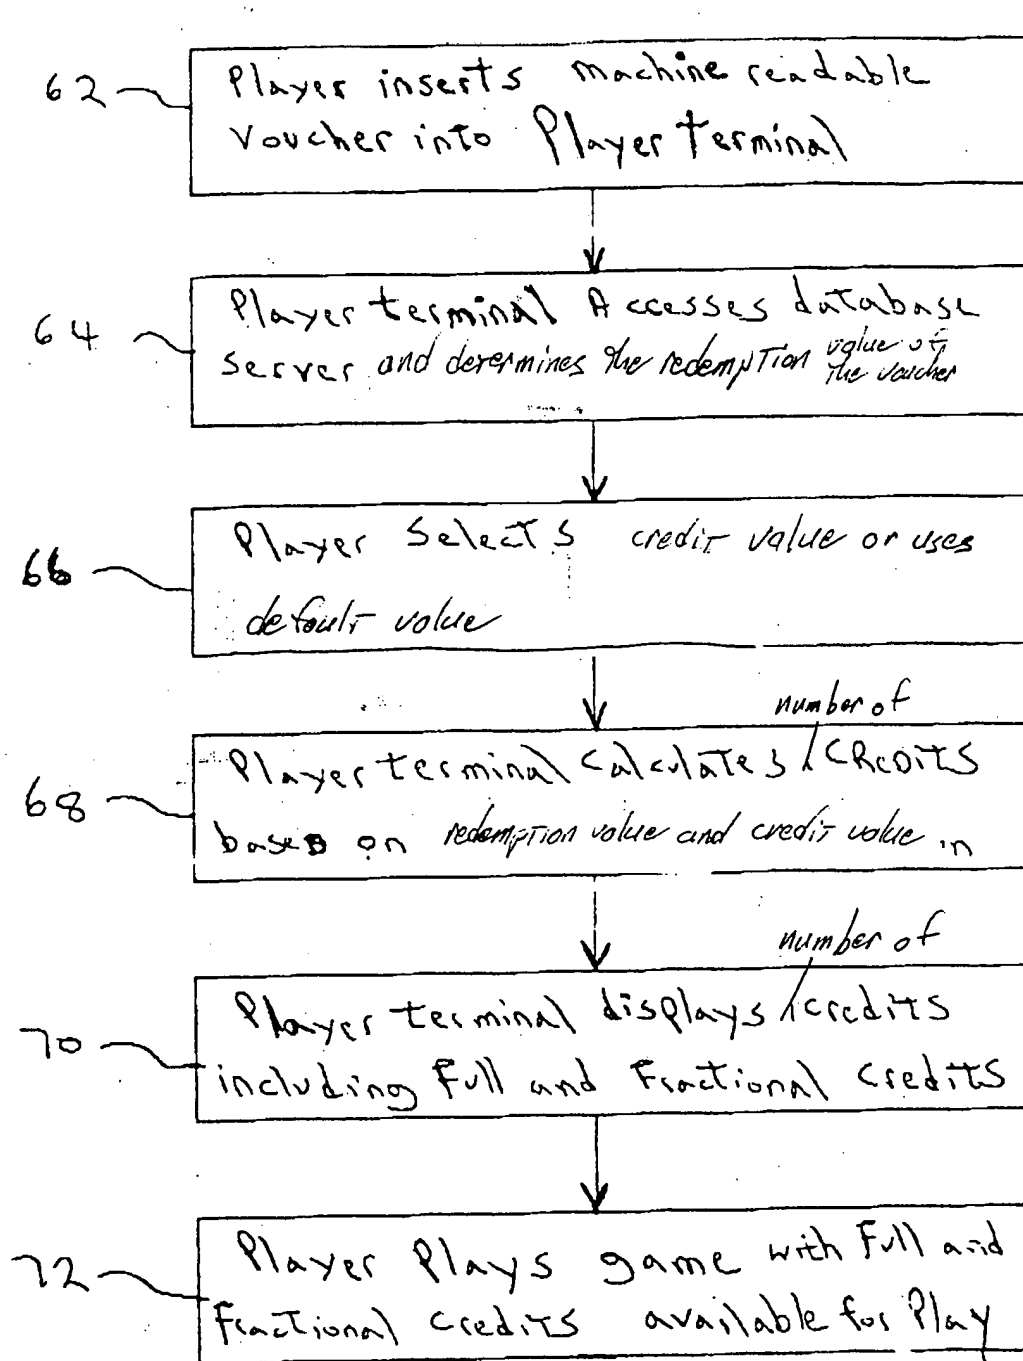 62
Player inserts machine readable
Voucher into Player terminal
64
Player terminal Accesses database
Server and determines the redemption value of
the voucher
66
Player Selects credit value or uses
default value
number of
68
Player terminal Calculates CREDITS
based on redemption value and credit value in
number of
70
Player terminal displays credits
including Full and Fractional Credits
72
Player Plays game with Full and
Fractional Credits available for Play